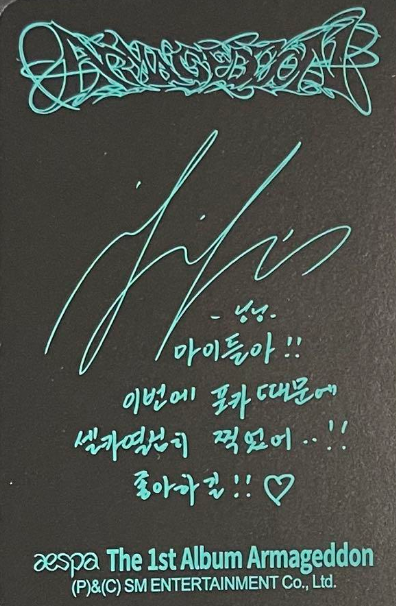 ARMAGEDDON
- 닝닝 -
마이들아!!
이번에 포카 때문에
셀카열심히 찍었어..!!
좋아하길!! ♡
æspa The 1st Album Armageddon
(P)&(C) SM ENTERTAINMENT Co., Ltd.